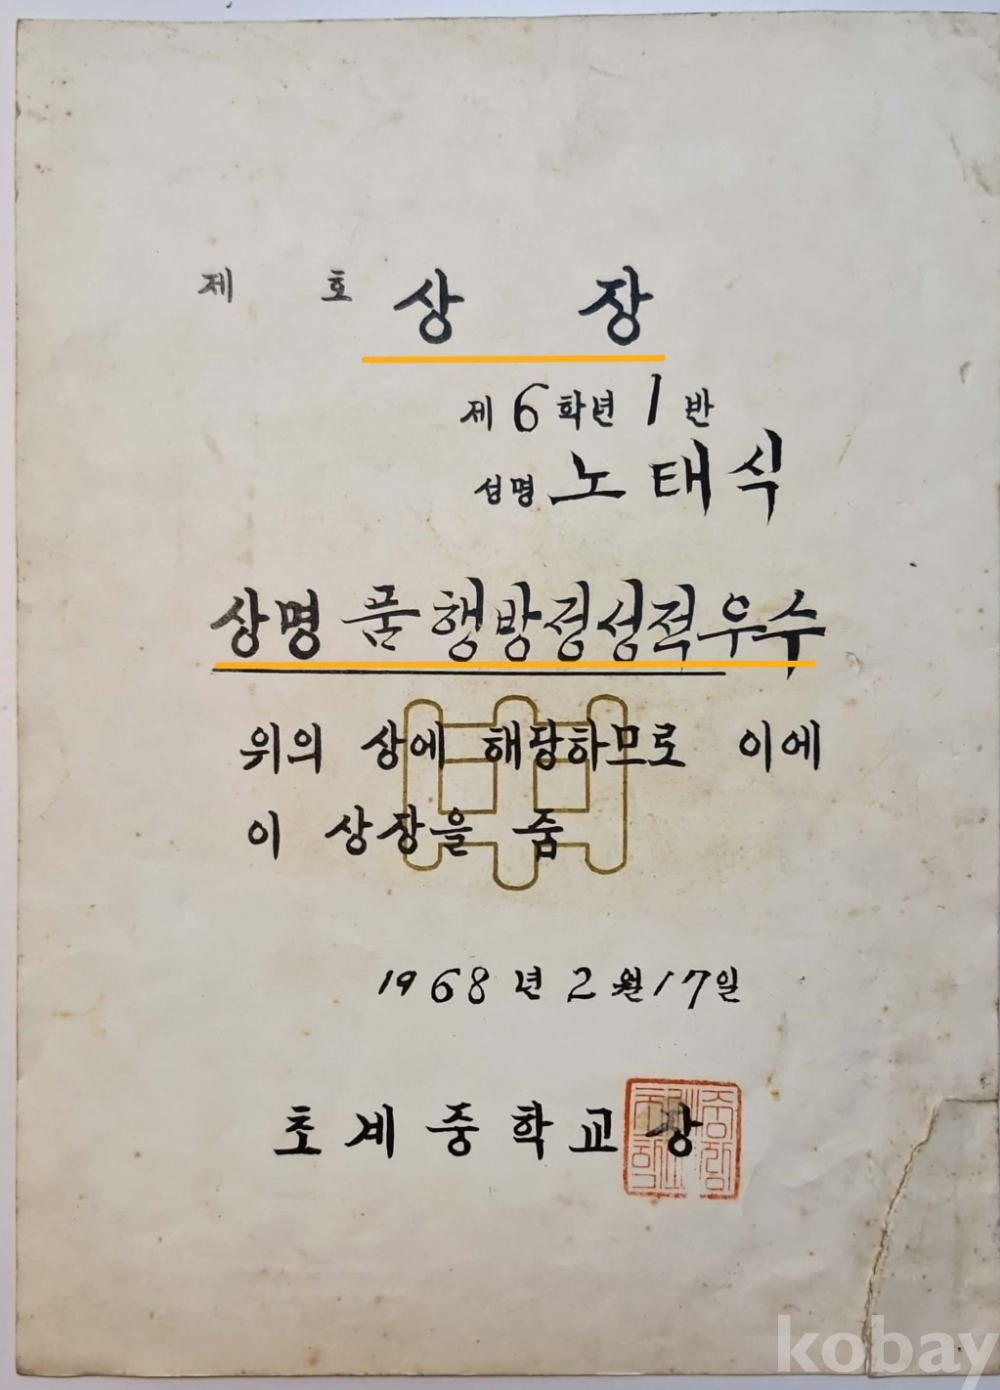 제 호 상 장
제 6 학년 1 반
성명 노 태 식
상명 품행방정성적우수
위의 상에 해당하므로 이에
이 상장을 줌
1968년 2월 17일
초계중학교장
kobay